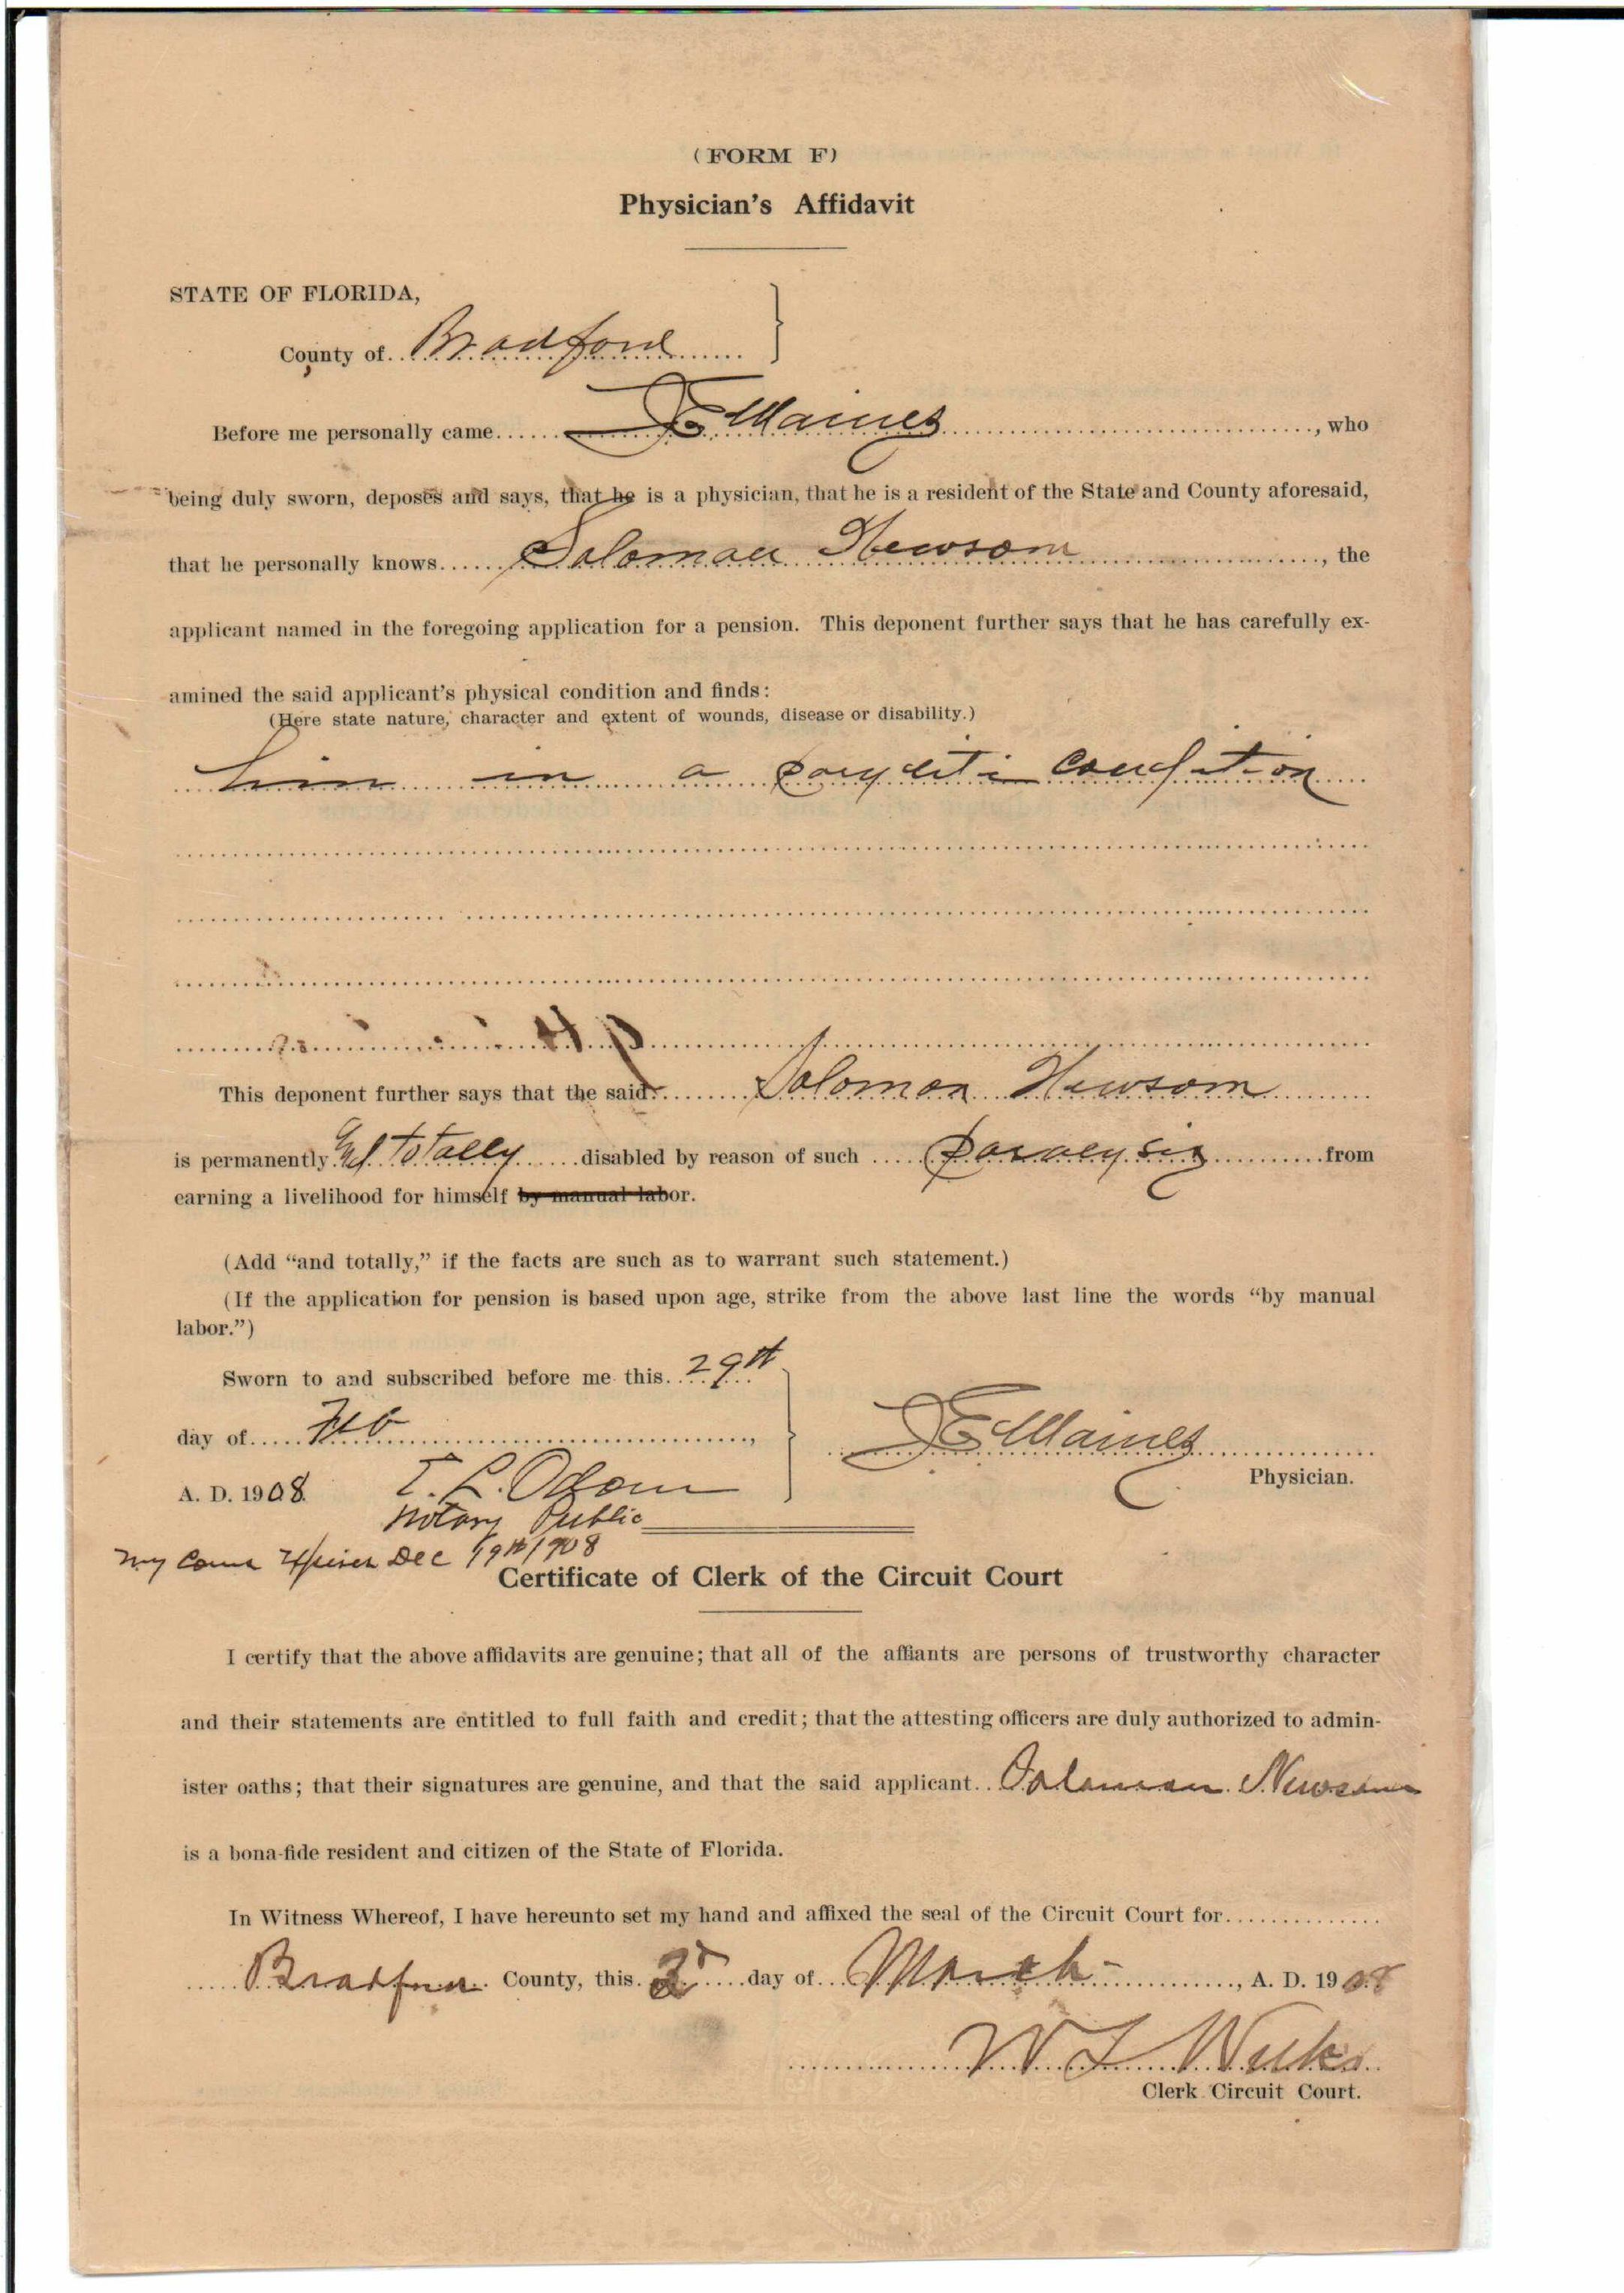 (FORM F)
Physician's Affidavit
STATE OF FLORIDA,
County of Bradford
Before me personally came Maines, who
being duly sworn, deposes and says, that he is a physician, that he is a resident of the State and County aforesaid,
that he personally knows Solomon Newsom, the
applicant named in the foregoing application for a pension. This deponent further says that he has carefully ex-
amined the said applicant's physical condition and finds:
(Here state nature, character and extent of wounds, disease or disability.)
him in a condition
This deponent further says that the said Solomon Newsom
is permanently & totally disabled by reason of such Paralysis from
earning a livelihood for himself by manual labor.
(Add "and totally," if the facts are such as to warrant such statement.)
(If the application for pension is based upon age, strike from the above last line the words "by manual
labor.")
Sworn to and subscribed before me this 29th
day of Feb,
Maines
Physician.
A. D. 1908. T. L. Odom
Notary Public
My Com Expires Dec 19th 1908
Certificate of Clerk of the Circuit Court
I certify that the above affidavits are genuine; that all of the affiants are persons of trustworthy character
and their statements are entitled to full faith and credit; that the attesting officers are duly authorized to admin-
ister oaths; that their signatures are genuine, and that the said applicant Soloman Newsom
is a bona-fide resident and citizen of the State of Florida.
In Witness Whereof, I have hereunto set my hand and affixed the seal of the Circuit Court for
Bradford County, this day of March, A. D. 1908
W L Weeks
Clerk Circuit Court.